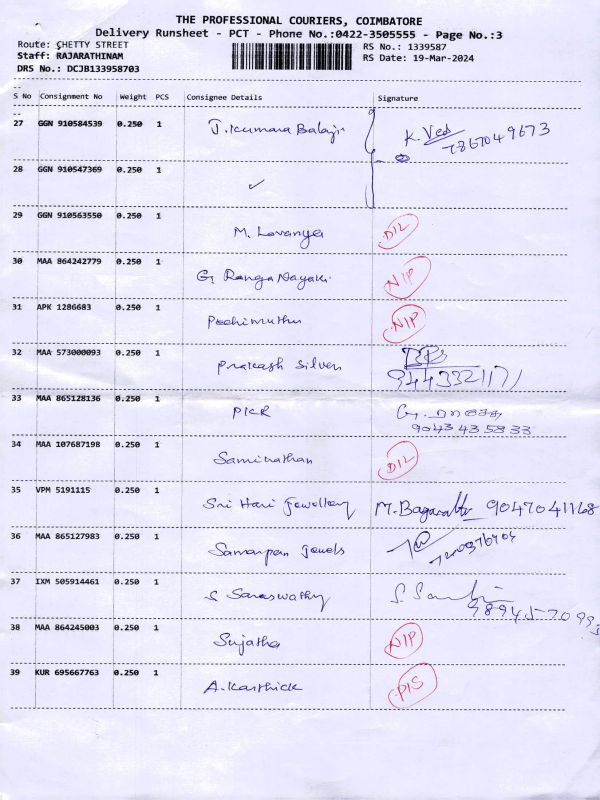 THE PROFESSIONAL COURIERS, COIMBATORE
Delivery Runsheet - PCT - Phone No.:0422-3505555 - Page No.:3
Route: CHETTY STREET
Staff: RAJARATHINAM
DRS No.: DCJB133958703
RS No.: 1339587
RS Date: 19-Mar-2024
S No Consignment No Weight PCS Consignee Details Signature
27 GGN 910584539 0.250 1 J. Kumara Balaji K. Ved
7867049673
28 GGN 910547369 0.250 1 ✓
29 GGN 910563550 0.250 1 M. Lavanya DIL
30 MAA 864242779 0.250 1 G. Ranga Nayaki NIP
31 APK 1286683 0.250 1 Pechimuthu NIP
32 MAA 573000093 0.250 1 Prakash Silver
9443321171
33 MAA 865128136 0.250 1 PKR G.
9043435833
34 MAA 107687198 0.250 1 Saminathan DIL
35 VPM 5191115 0.250 1 Sri Hari Jewellery M. 9047041168
36 MAA 865127983 0.250 1 Samarpan Jewels
37 IXM 505914461 0.250 1 S Saraswathy S
38 MAA 864245003 0.250 1 Sujatha NIP
39 KUR 695667763 0.250 1 A. Karthick PIS